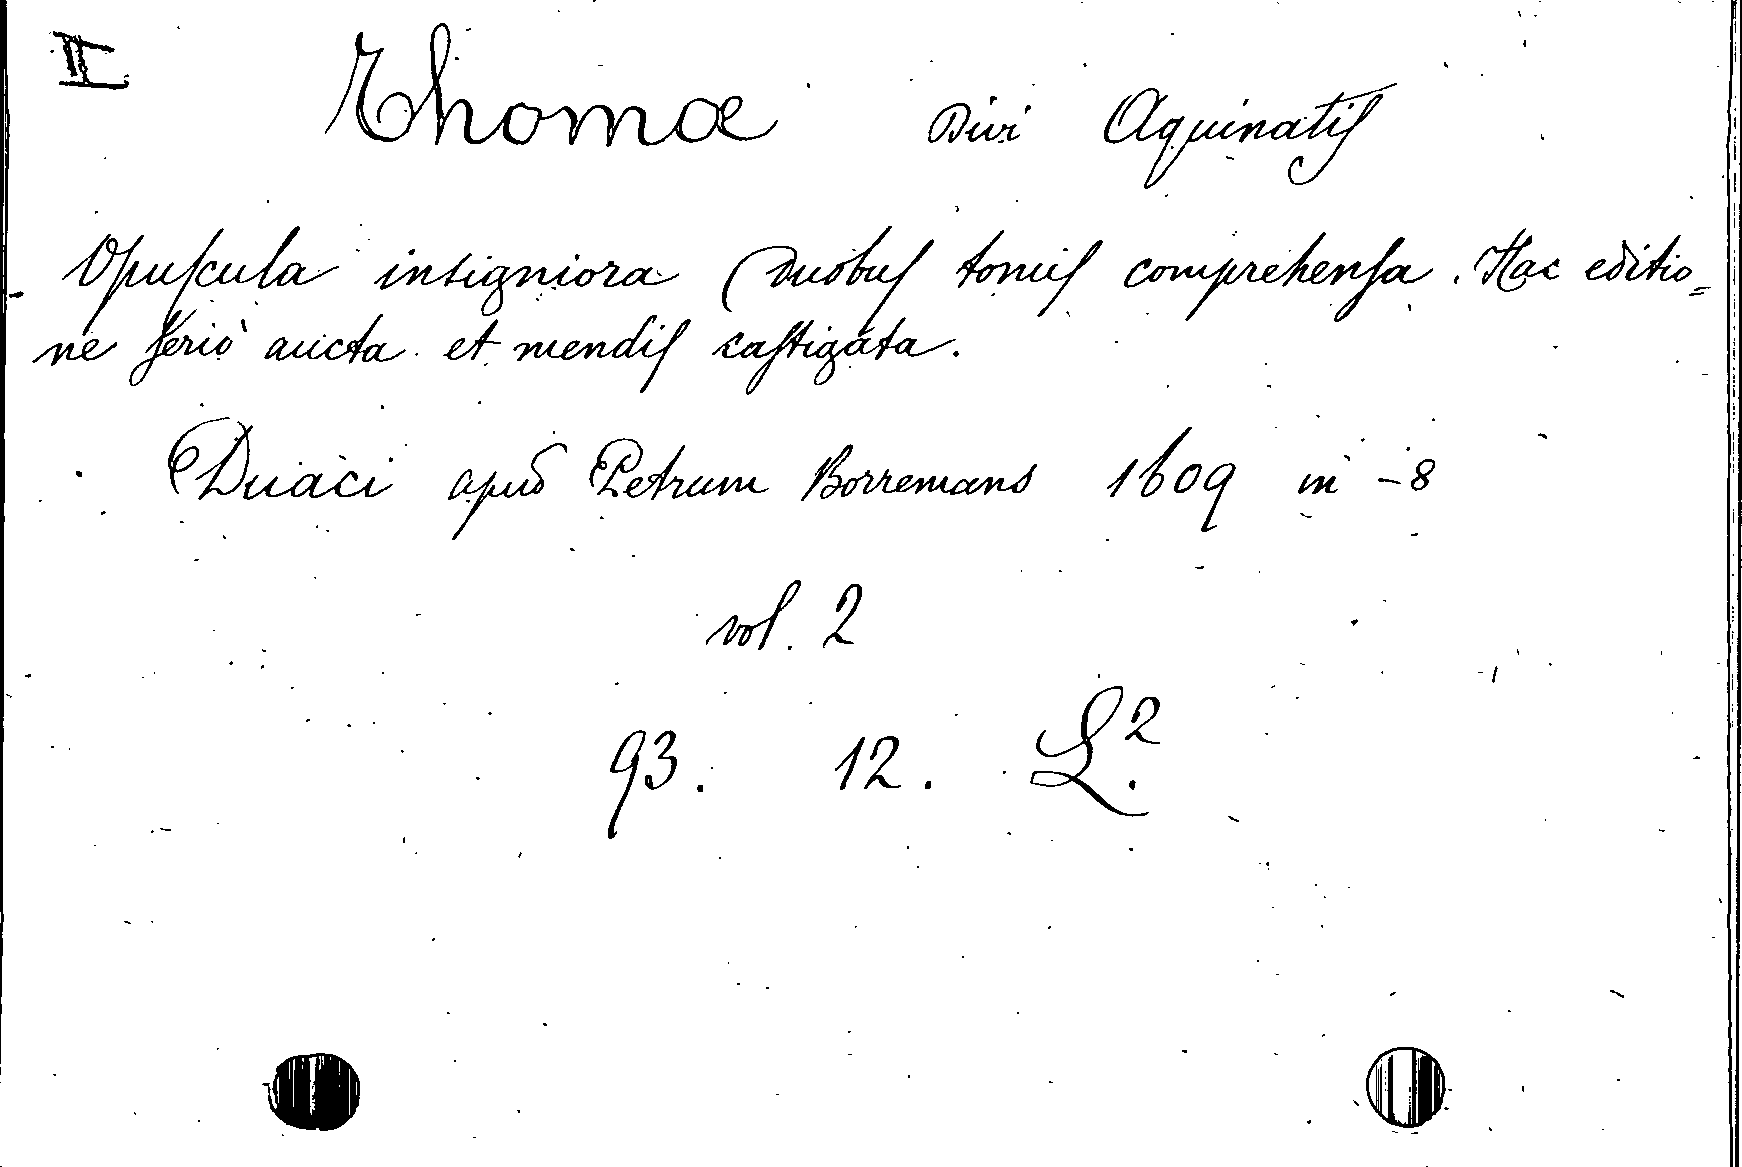 II
Thomæ Divi Aquinatis
Opuscula insigniora duobus tomis comprehensa. Hac editio=
ne seriò aucta et mendis castigata.
Duaci apud Petrum Borremans 1609 in -8
vol. 2
93. 12. L.²